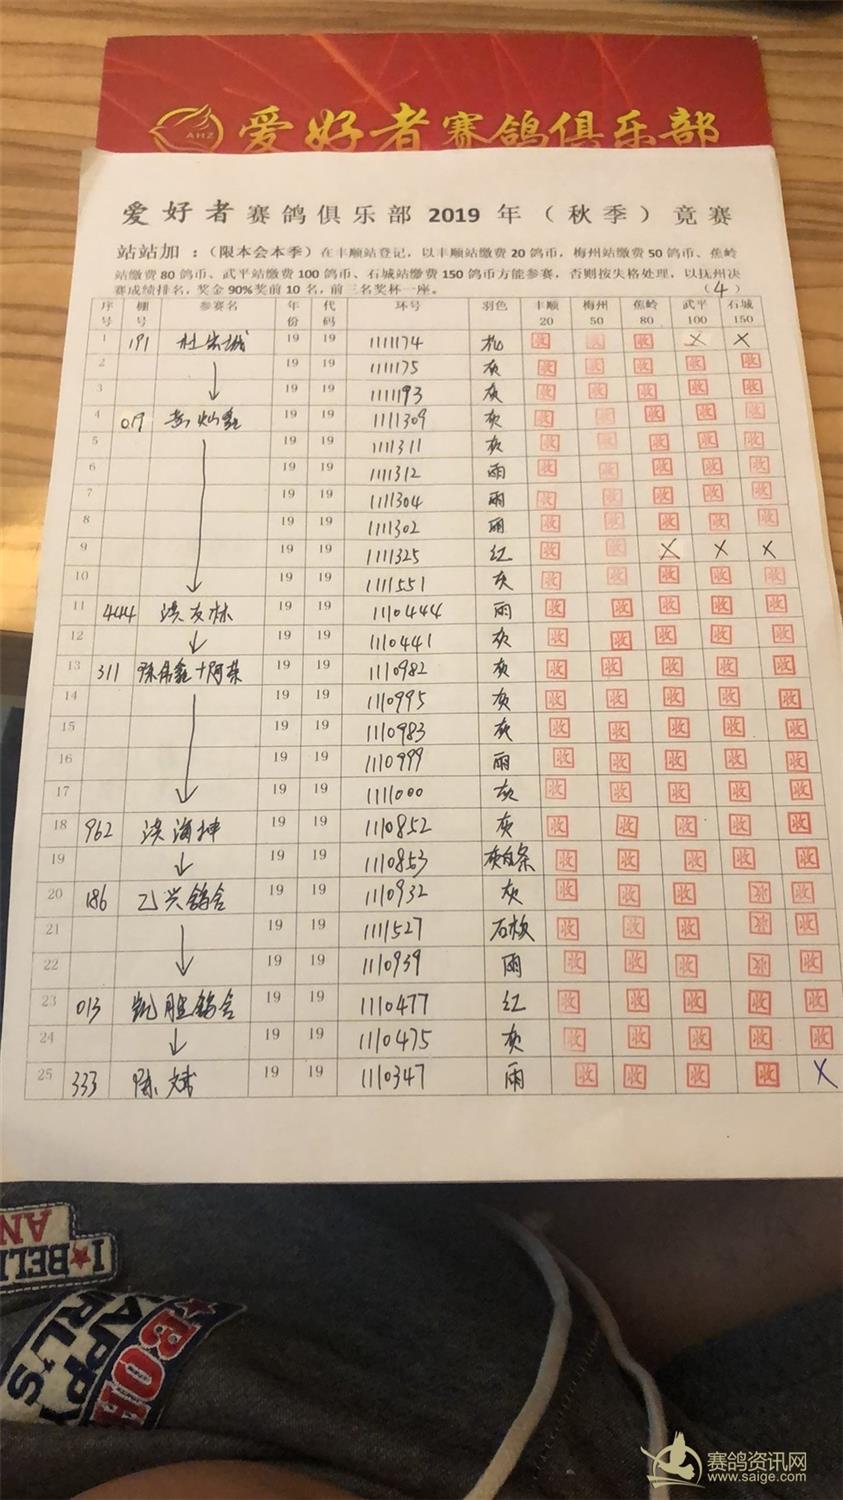 AHZ 爱好者赛鸽俱乐部
爱好者赛鸽俱乐部 2019 年（秋季）竞赛
站站加：（限本会本季）在丰顺站登记，以丰顺站缴费 20 鸽币，梅州站缴费 50 鸽币、蕉岭
站缴费 80 鸽币、武平站缴费 100 鸽币、石城站缴费 150 鸽币方能参赛，否则按失格处理，以抚州决
赛成绩排名，奖金 90%奖前 10 名，前三名奖杯一座。 （4）
序号 棚号 参赛名 年份 代码 环号 羽色 丰顺 20 梅州 50 蕉岭 80 武平 100 石城 150
1 191 19 19 1111174 收 收 收 X X
2 19 19 1111175 灰 收 收 收 收 收
3 19 19 1111193 灰 收 收 收 收 收
4 019 19 19 1111309 灰 收 收 收 收 收
5 19 19 1111311 灰 收 收 收 收 收
6 19 19 1111312 雨 收 收 收 收 收
7 19 19 1111304 雨 收 收 收 收 收
8 19 19 1111302 雨 收 收 收 收 收
9 19 19 1111325 红 收 收 X X X
10 19 19 1111551 灰 收 收 收 收 收
11 444 洪友林 19 19 1110444 雨 收 收 收 收 收
12 19 19 1110441 灰 收 收 收 收 收
13 311 19 19 1110982 灰 收 收 收 收 收
14 19 19 1110995 灰 收 收 收 收 收
15 19 19 1110983 灰 收 收 收 收 收
16 19 19 1110999 雨 收 收 收 收 收
17 19 19 1111000 灰 收 收 收 收 收
18 962 洪海坤 19 19 1110852 灰 收 收 收 收 收
19 19 19 1110853 灰白条 收 收 收 收 收
20 186 乙兴鸽舍 19 19 1110932 灰 收 收 收 收 收
21 19 19 1111527 收 收 收 收 收
22 19 19 1110939 雨 收 收 收 收 收
23 013 凯胜鸽舍 19 19 1110477 红 收 收 收 收 收
24 19 19 1110475 灰 收 收 收 收 收
25 333 陈斌 19 19 1110347 雨 收 收 收 收 X
AN
I★BELI
BOH
APPY
RL'S
赛鸽资讯网
www.saige.com